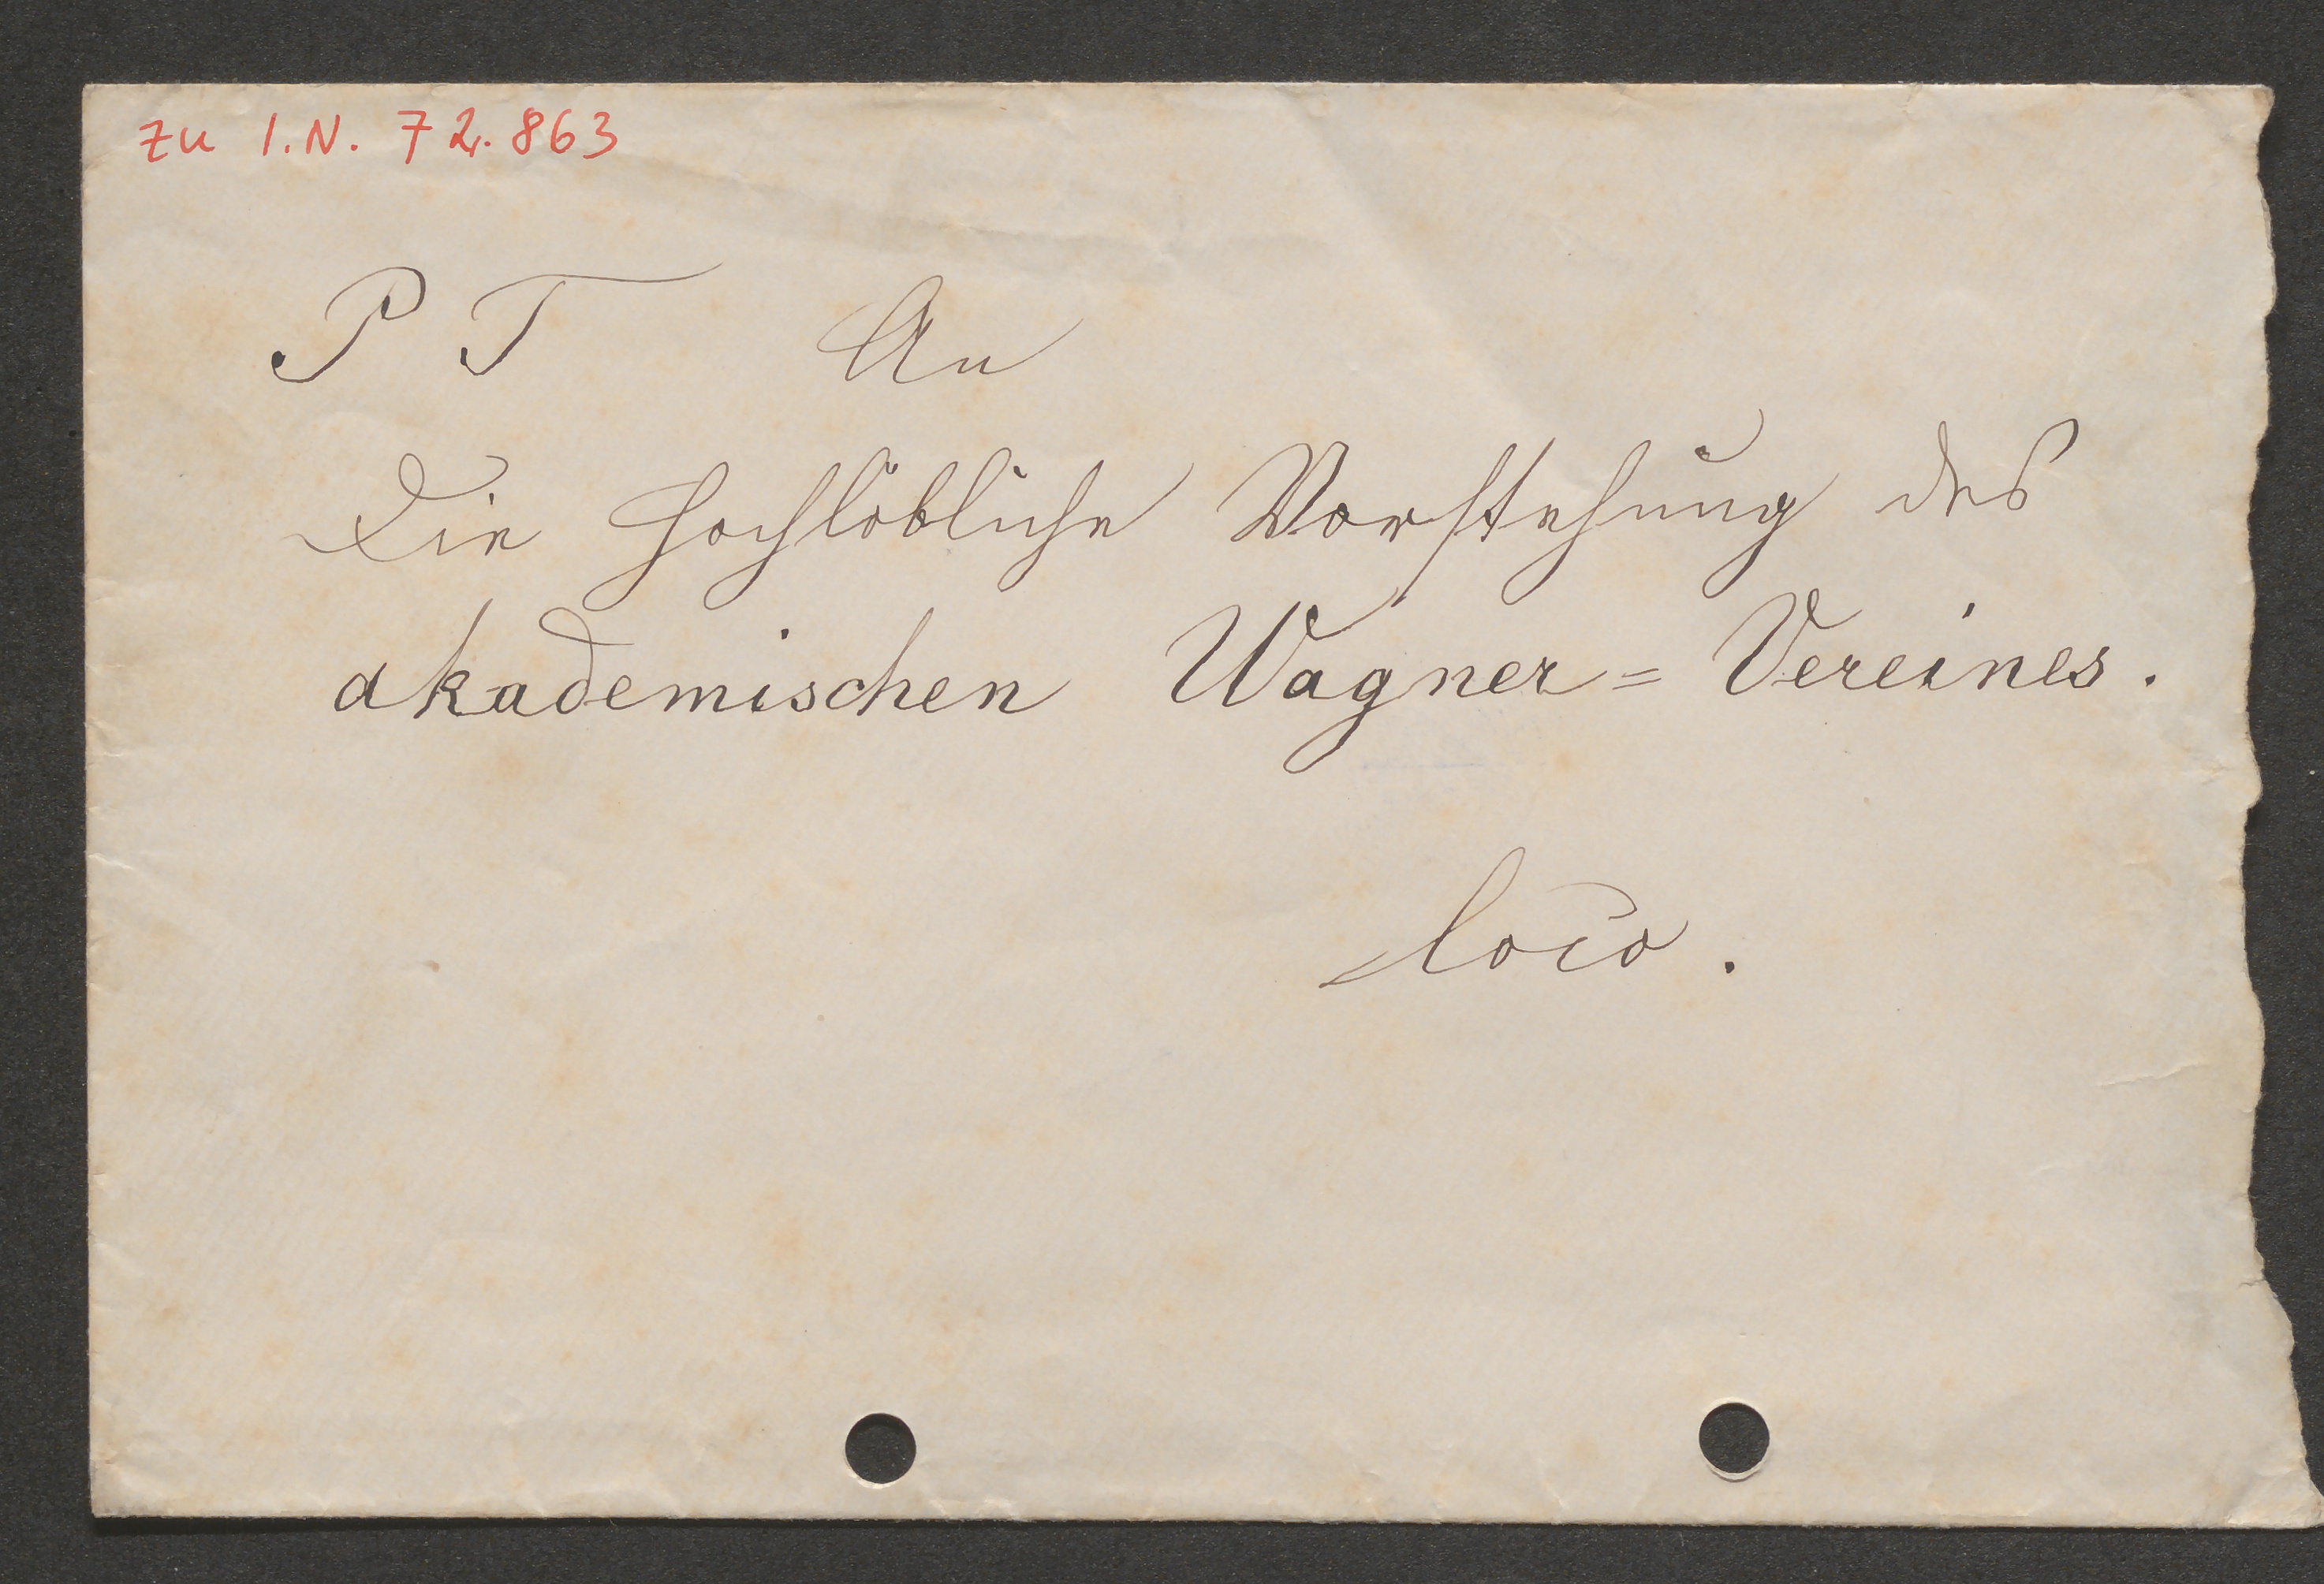 zu I.N. 72.863
P T An
Die hochlöbliche Vorstehung des
akademischen Wagner= Vereines.
loco.